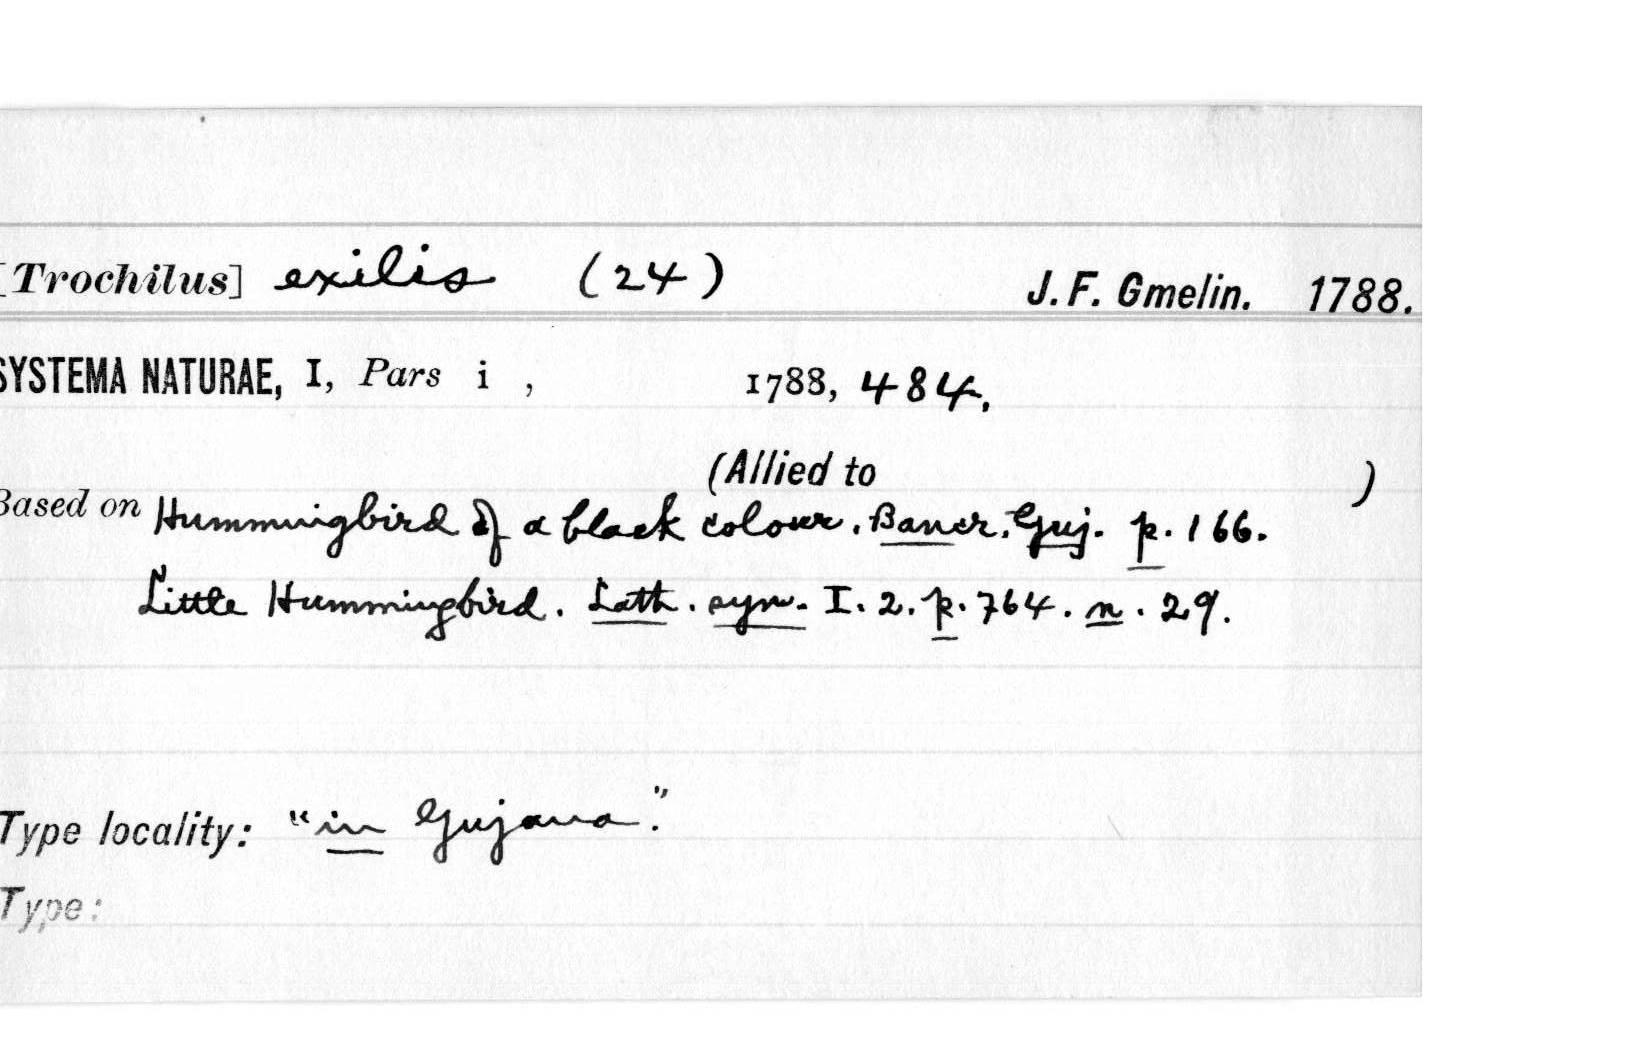 [Trochilus] exilis (24) J. F. Gmelin. 1788.
SYSTEMA NATURAE, I, Pars i , 1788, 484.
(Allied to )
Based on Hummingbird of a black colour. Bancr. Guj. p. 166.
Little Hummingbird. Lath. syn. I. 2. p. 764. n. 29.
Type locality: "in Gujana".
Type: